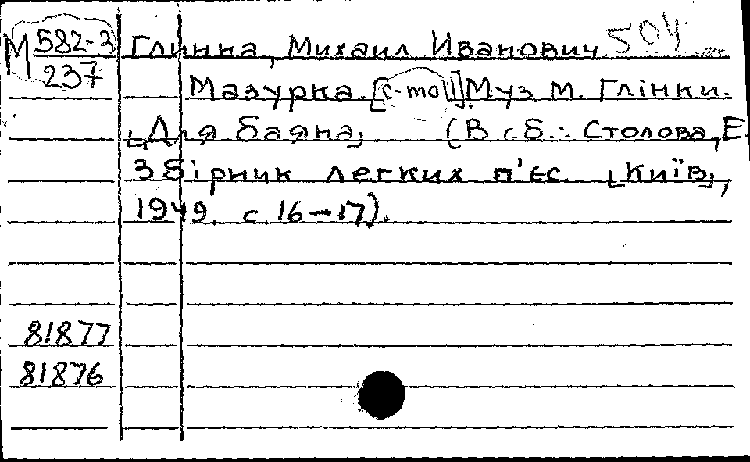 М 582-3
237
Глинка, Михаил Иванович 504
Мазурка [c-moll]. Муз. М. Глінки.
[Для баяна] (В сб.: Столова, Е.
Збірник легких п'єс. [Київ],
1949. с. 16-17).
81877
81876